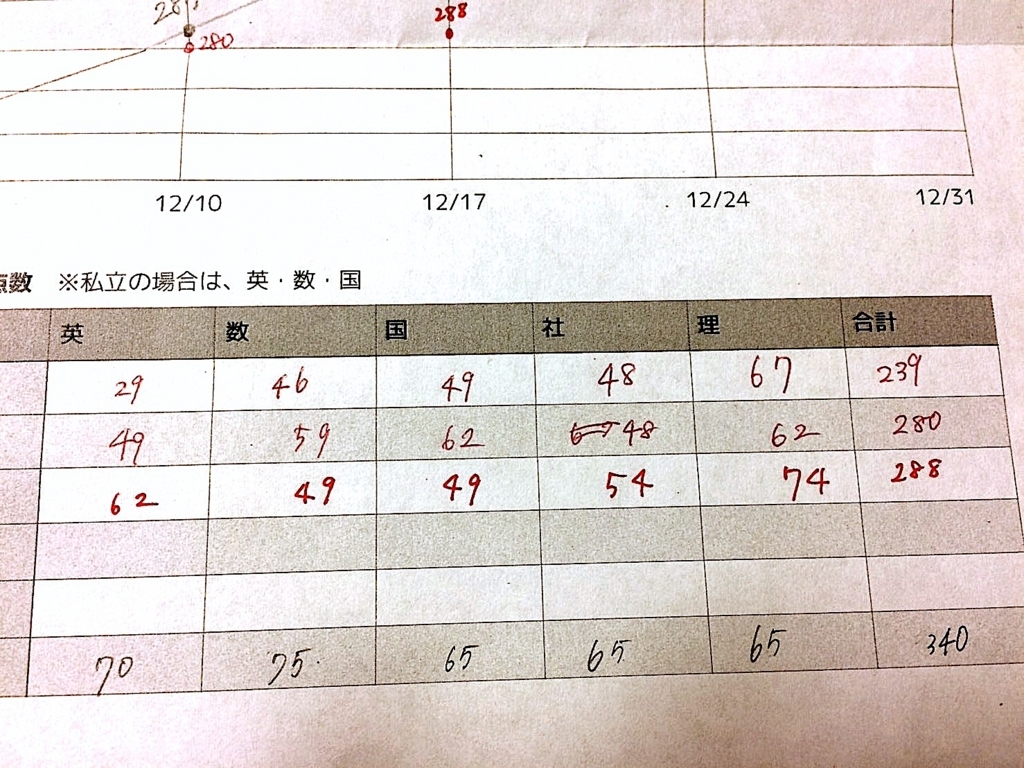 288
280
12/10 12/17 12/24 12/31
点数 ※私立の場合は、英・数・国
英 数 国 社 理 合計
29 46 49 48 67 239
49 59 62 48 62 280
62 49 49 54 74 288
70 75 65 65 65 340